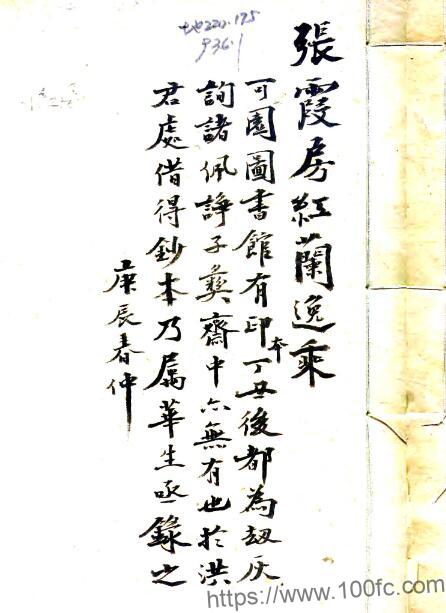 張霞房紅蘭逸乘
可園圖書館有印本丁丑後都為劫灰
詢諸佩諍子彝齋中亦無有也於洪
君處借得鈔本乃屬華生亟錄之
庚辰春仲
地220.175
936.1
https://www.100fc.com